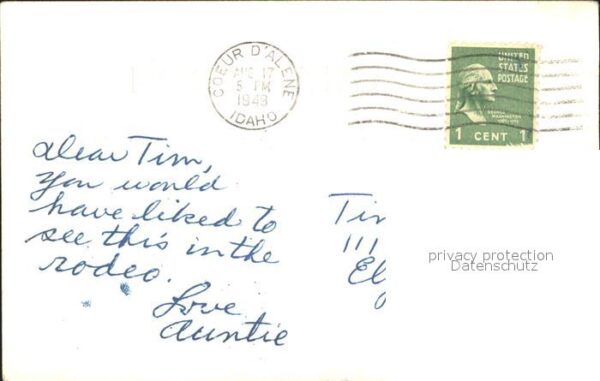 COEUR D'ALENE
AUG 17
5 PM
1949
IDAHO
UNITED
STATES
POSTAGE
GEORGE
WASHINGTON
1 CENT 1
Dear Tim,
You would
have liked to
see this in the
rodeo.
Love
Auntie
Tim
111
privacy protection
Datenschutz